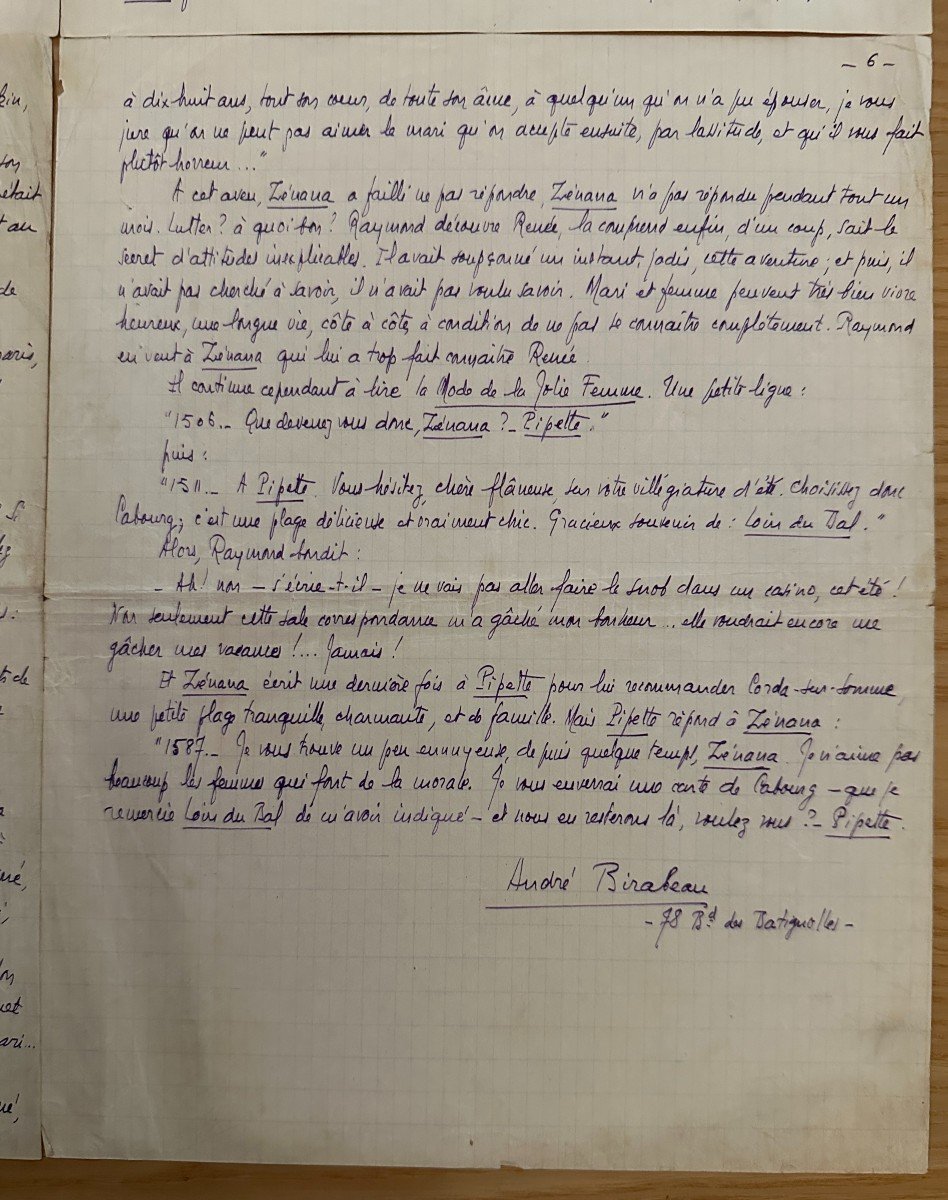 - 6 -
à dix huit ans, tout son coeur, de toute son âme, à quelqu'un qu'on n'a pu épouser, je vous
jure qu'on ne peut pas aimer le mari qu'on accepte ensuite, par lassitude, et qu'il vous fait
plutôt horreur..."
A cet aveu, Zénana a failli ne pas répondre, Zénana n'a pas répondu pendant tout un
mois. Lutter? à quoi bon? Raymond découvre Renée, la comprend enfin, d'un coup, sait le
secret d'attitudes inexplicables. Il avait soupçonné un instant, jadis, cette aventure; et puis, il
n'avait pas cherché à savoir, il n'avait pas voulu savoir. Mari et femme peuvent très bien vivre
heureux, une longue vie, côte à côte, à condition de ne pas se connaître complètement. Raymond
en veut à Zénana qui lui a trop fait connaître Renée.
Il continue cependant à lire la Mode de la Jolie Femme. Une petite ligne :
"1506._ Que devenez vous donc, Zénana ?_ Pipette."
puis :
"1511._ A Pipette. Vous hésitez, chère flâneuse, sur votre villégiature d'été. Choisissez donc
Cabourg; c'est une plage délicieuse et vraiment chic. Gracieux souvenir de : Loin du Bal."
Alors, Raymond bondit :
_ Ah! non _ s'écrie-t-il _ je ne vais pas aller faire le snob dans un casino, cet été !
Non seulement cette sale correspondance m'a gâché mon bonheur... elle voudrait encore me
gâcher mes vacances !... Jamais !
Et Zénana écrit une dernière fois à Pipette pour lui recommander Corde-sur-Somme,
une petite plage tranquille, charmante, et de famille. Mais Pipette répond à Zénana :
"1587._ Je vous trouve un peu ennuyeuse, depuis quelque temps, Zénana. Je n'aime pas
beaucoup les femmes qui font de la morale. Je vous enverrai une carte de Cabourg _ que je
remercie Loin du Bal de m'avoir indiqué _ et nous en resterons là, voulez vous ?_ Pipette.
André Birabeau
- 78 Bd des Batignolles -